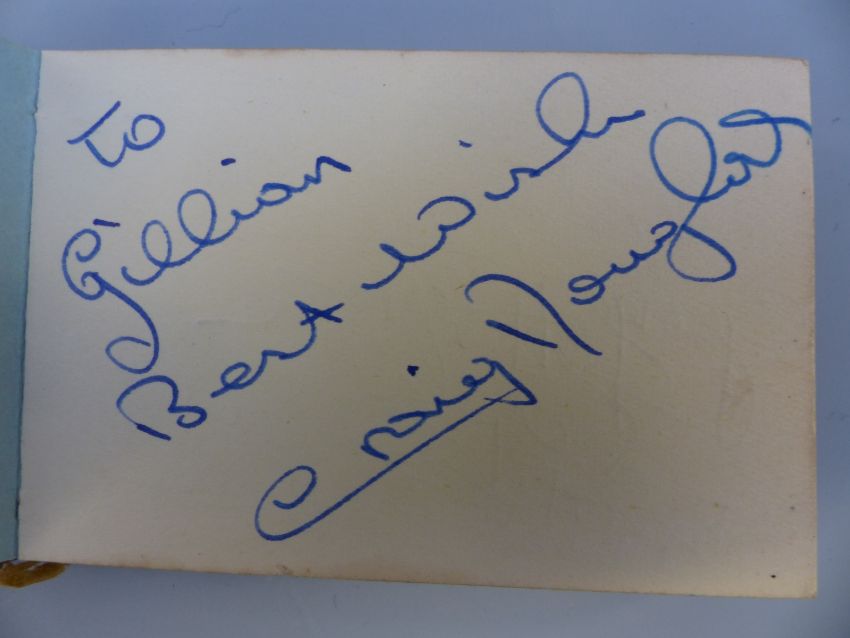 To
Gillian
Best Wishes
Craig Douglas